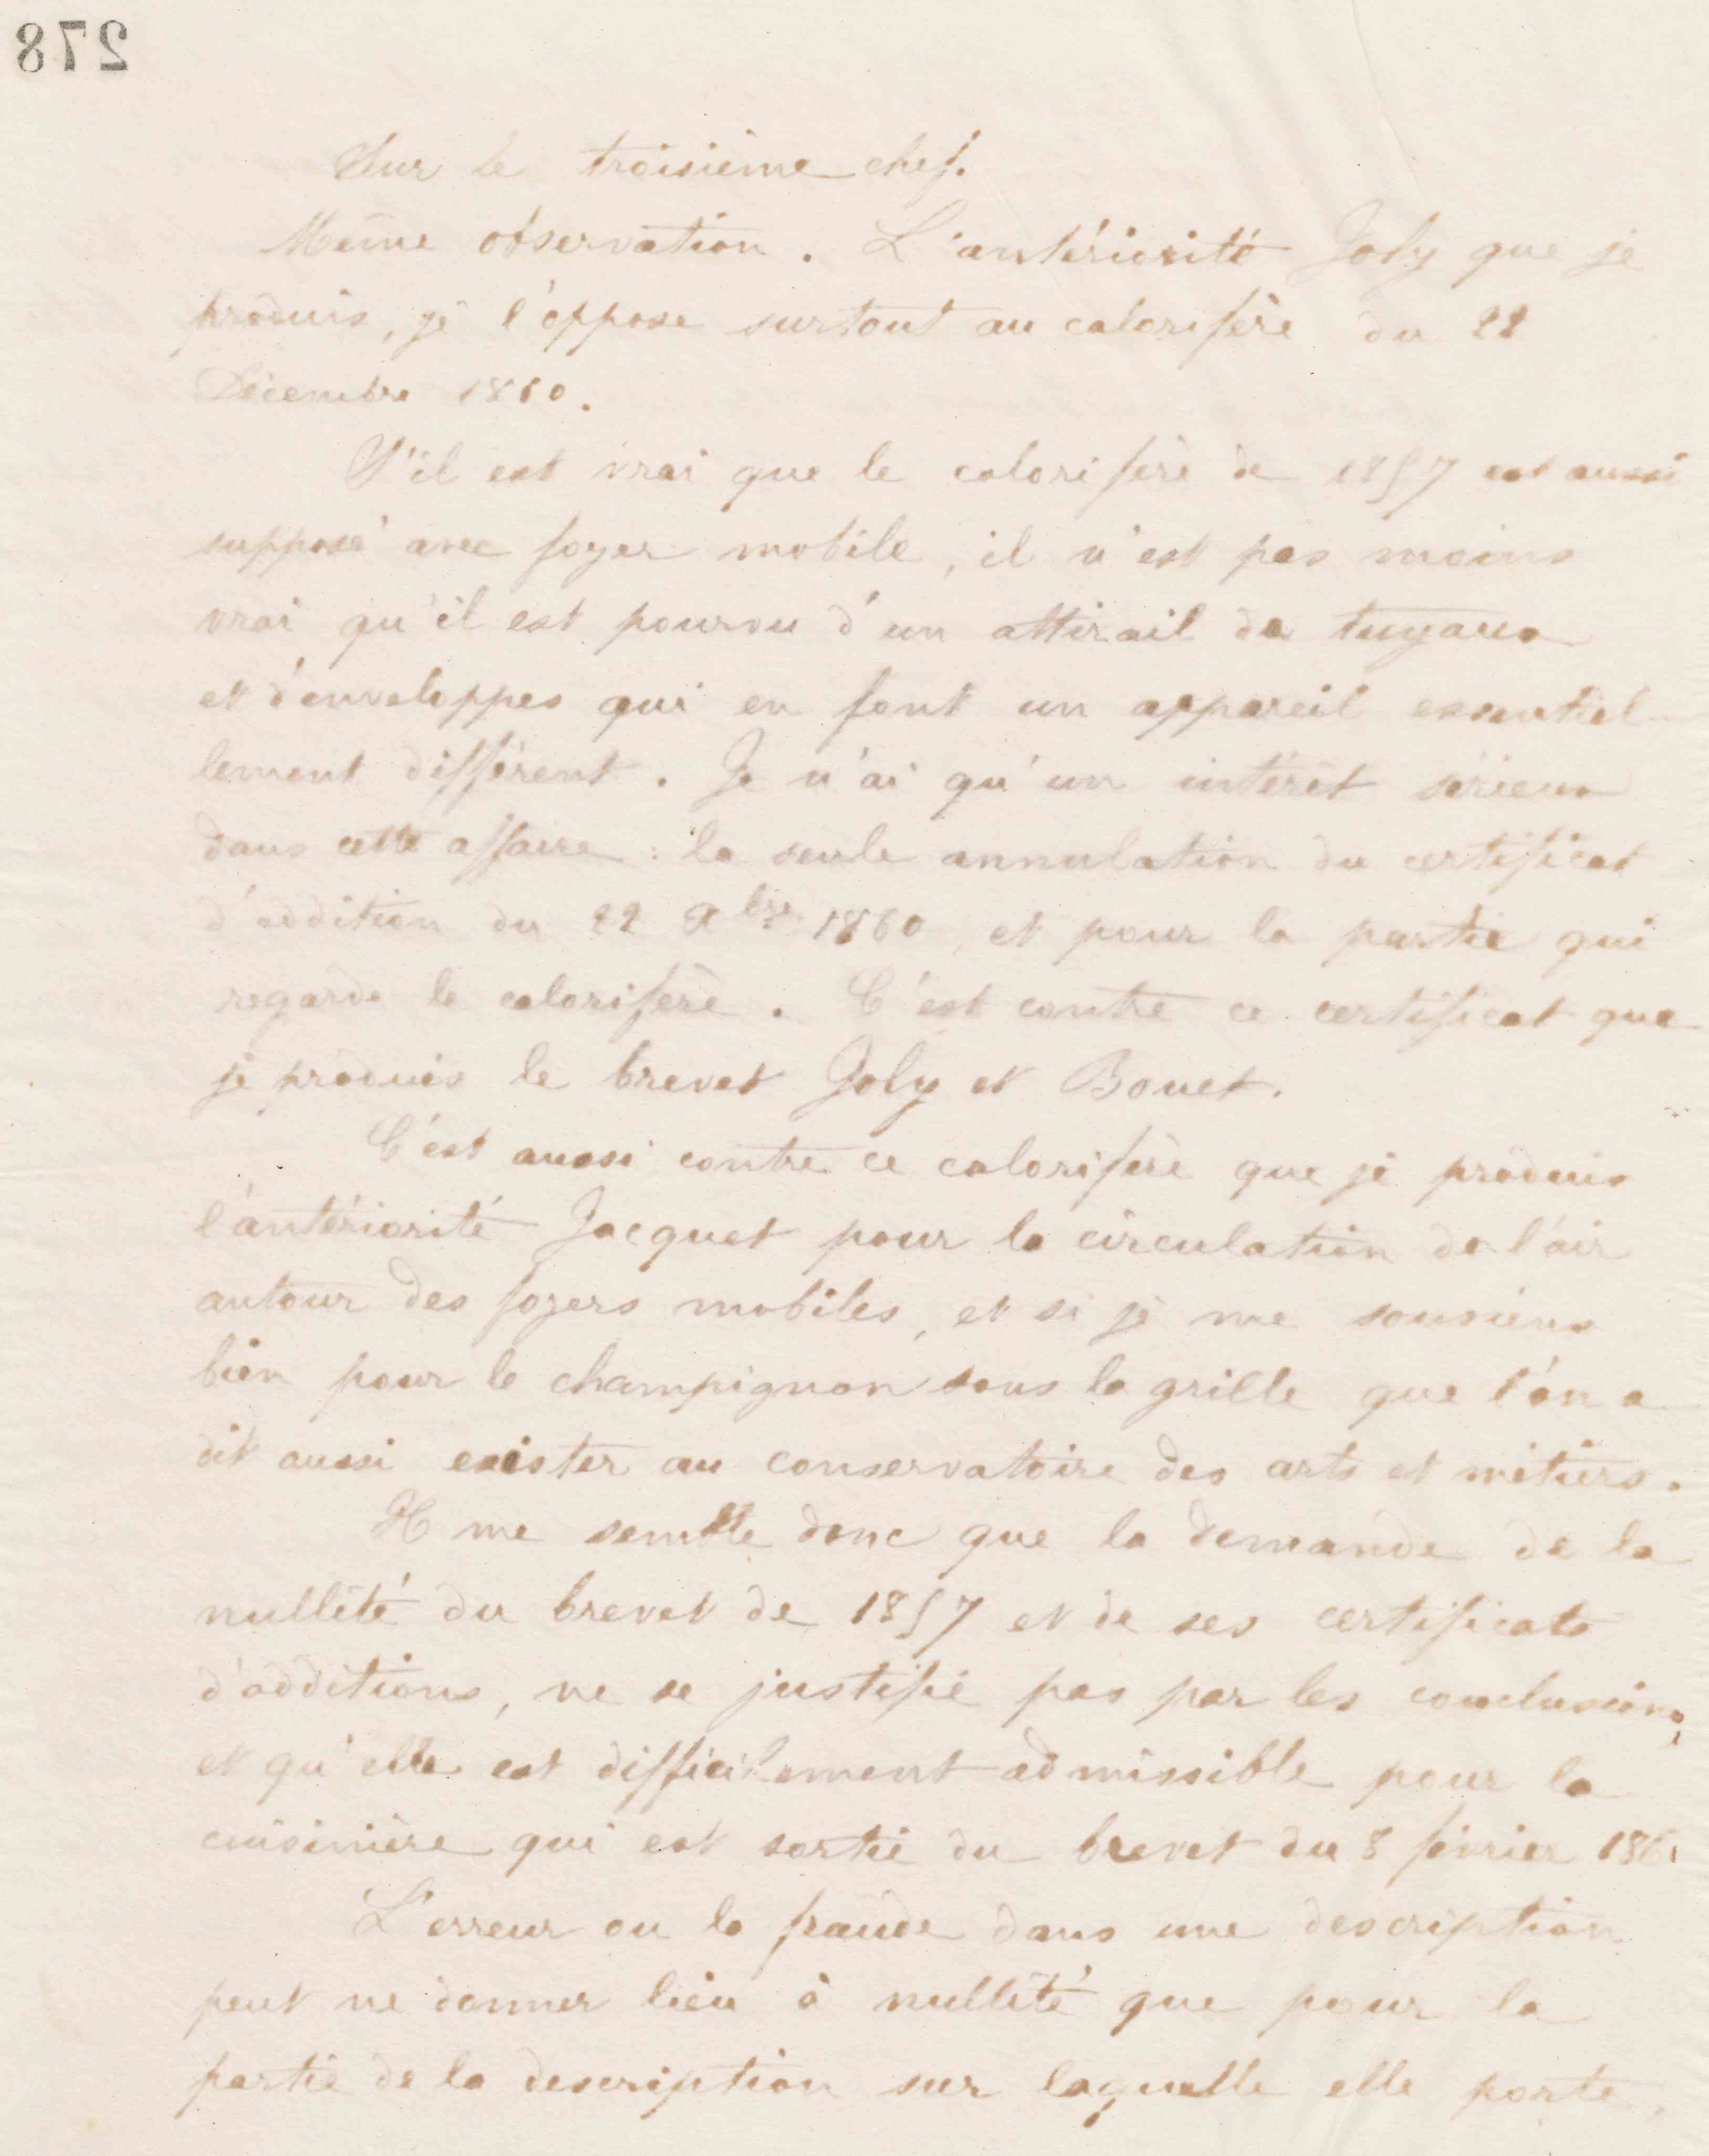 278
Sur le troisième chef.
Même observation. L'antériorité Joly que je
produis, je l'oppose surtout au calorifère du 22
Décembre 1860.
S'il est vrai que le calorifère de 1857 est aussi
supposé avec foyer mobile, il n'est pas moins
vrai qu'il est pourvu d'un attirail de tuyaux
et d'enveloppes qui en font un appareil essentiel-
lement différent. Je n'ai qu'un intérêt sérieux
dans cette affaire : la seule annulation du certificat
d'addition du 22 Xbre 1860, et pour la partie qui
regarde le calorifère. C'est contre ce certificat que
je produis le brevet Joly et Bouet.
C'est aussi contre ce calorifère que je produis
l'antériorité Jacquet pour la circulation de l'air
autour des foyers mobiles, et si je me souviens
bien pour le champignon sous la grille que l'on a
dit aussi exister au conservatoire des arts et métiers.
Il me semble donc que la demande de la
nullité du brevet de 1857 et de ses certificats
d'additions, ne se justifie pas par les conclusions,
et qu'elle est difficilement admissible pour la
cuisinière qui est sortie du brevet du 8 février 1861
L'erreur ou la fraude dans une description
peut ne donner lieu à nullité que pour la
partie de la description sur laquelle elle porte,